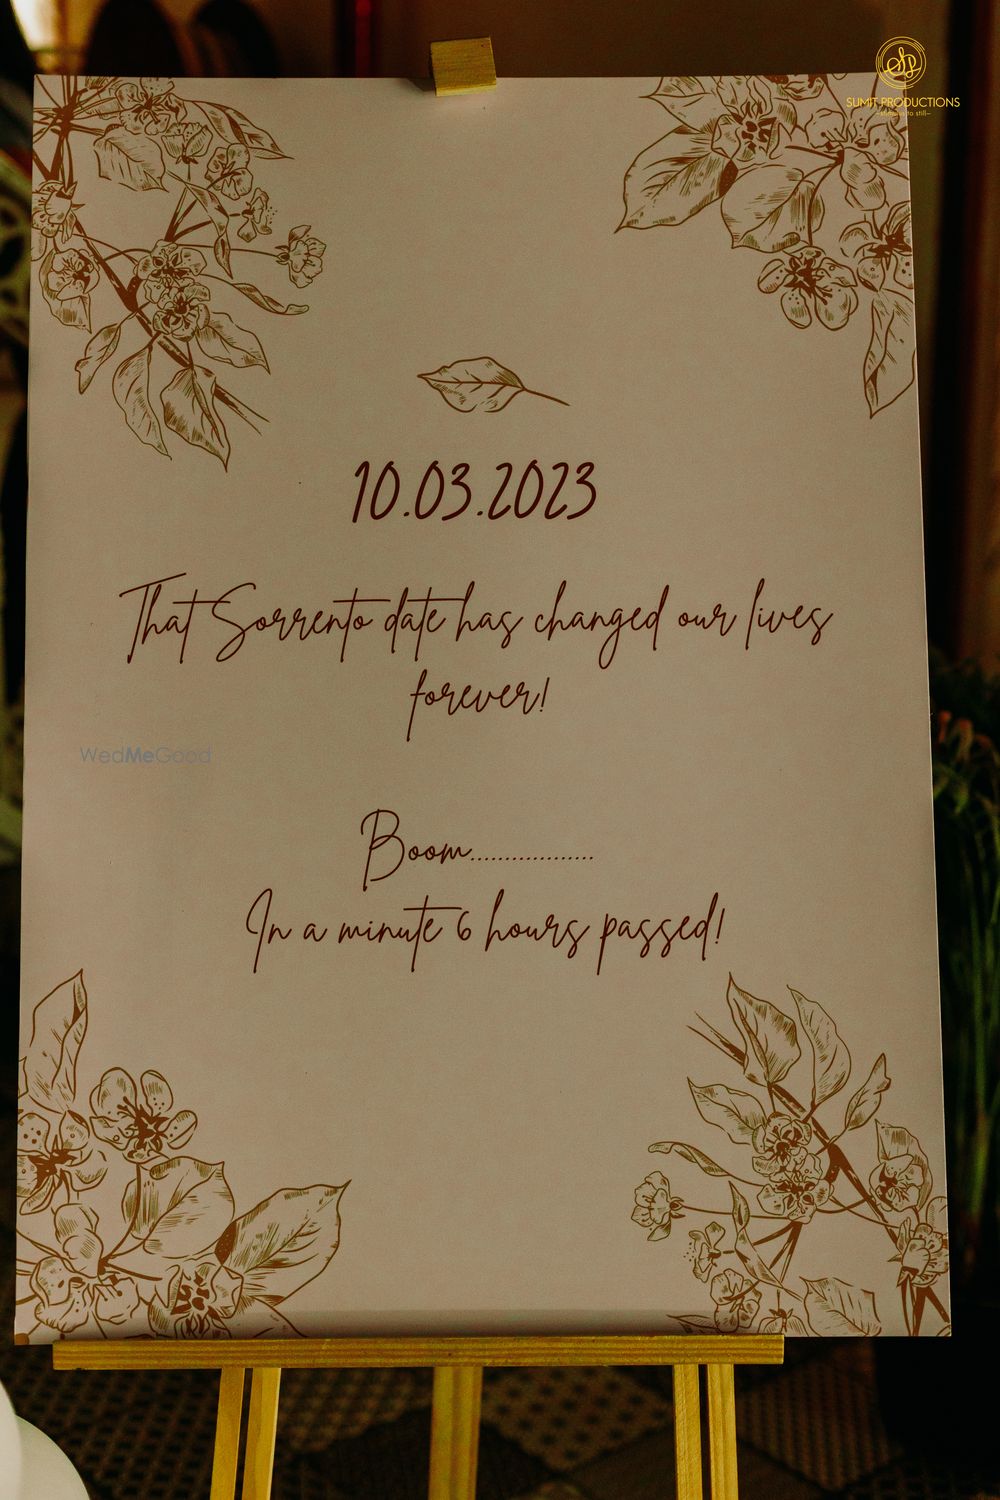 SUMIT PRODUCTIONS
10.03.2023
That Sorrento date has changed our lives
forever!
WedMeGood
Boom..................
In a minute 6 hours passed!